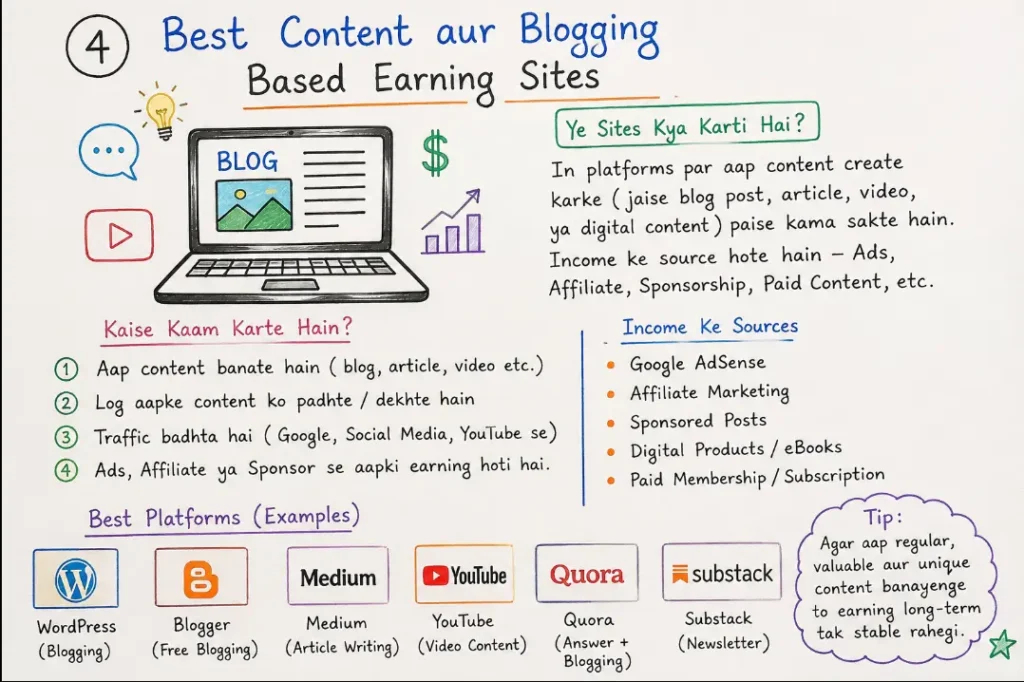 4
Best Content aur Blogging
Based Earning Sites
BLOG
$
Ye Sites Kya Karti Hai?
In platforms par aap content create
karke (jaise blog post, article, video,
ya digital content) paise kama sakte hain.
Income ke source hote hain – Ads,
Affiliate, Sponsorship, Paid Content, etc.
Kaise Kaam Karte Hain?
1 Aap content banate hain (blog, article, video etc.)
2 Log aapke content ko padhte / dekhte hain
3 Traffic badhta hai (Google, Social Media, YouTube se)
4 Ads, Affiliate ya Sponsor se aapki earning hoti hai.
Income Ke Sources
• Google AdSense
• Affiliate Marketing
• Sponsored Posts
• Digital Products / eBooks
• Paid Membership / Subscription
Best Platforms (Examples)
WordPress
(Blogging)
Blogger
(Free Blogging)
Medium
Medium
(Article Writing)
YouTube
YouTube
(Video Content)
Quora
Quora
(Answer +
Blogging)
substack
Substack
(Newsletter)
Tip:
Agar aap regular,
valuable aur unique
content banayenge
to earning long-term
tak stable rahegi.